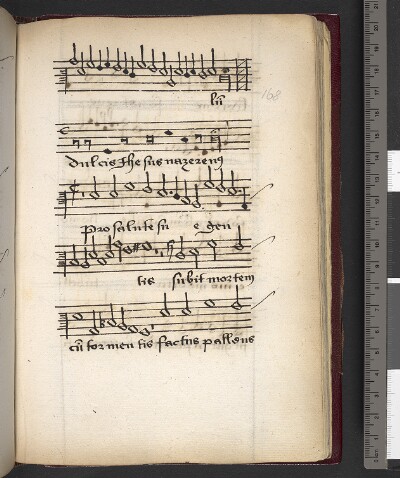 lū
168
dulcis Jhesus nazerenus
pro salute su e gen
tis subit mortem
cū tor men tis factus pallens